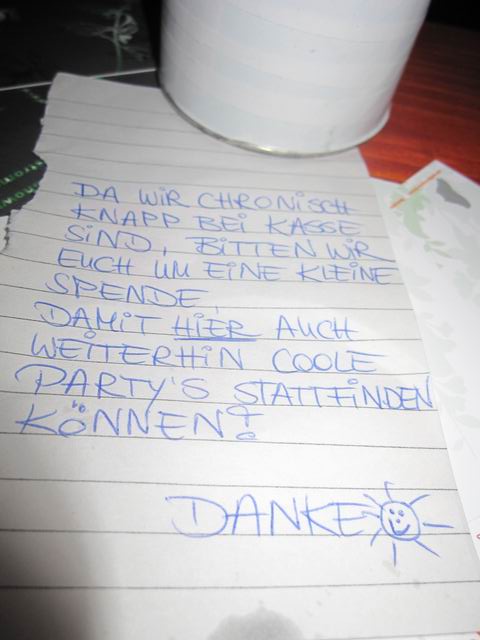 DA WIR CHRONISCH
KNAPP BEI KASSE
SIND, BITTEN WIR
EUCH UM EINE KLEINE
SPENDE,
DAMIT HIER AUCH
WEITERHIN COOLE
PARTY'S STATTFINDEN
KÖNNEN!
DANKE